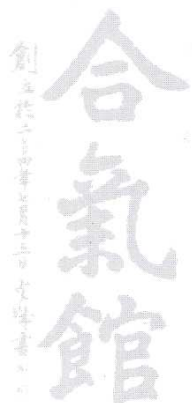 合氣館
創立於二〇〇四年七月十三日